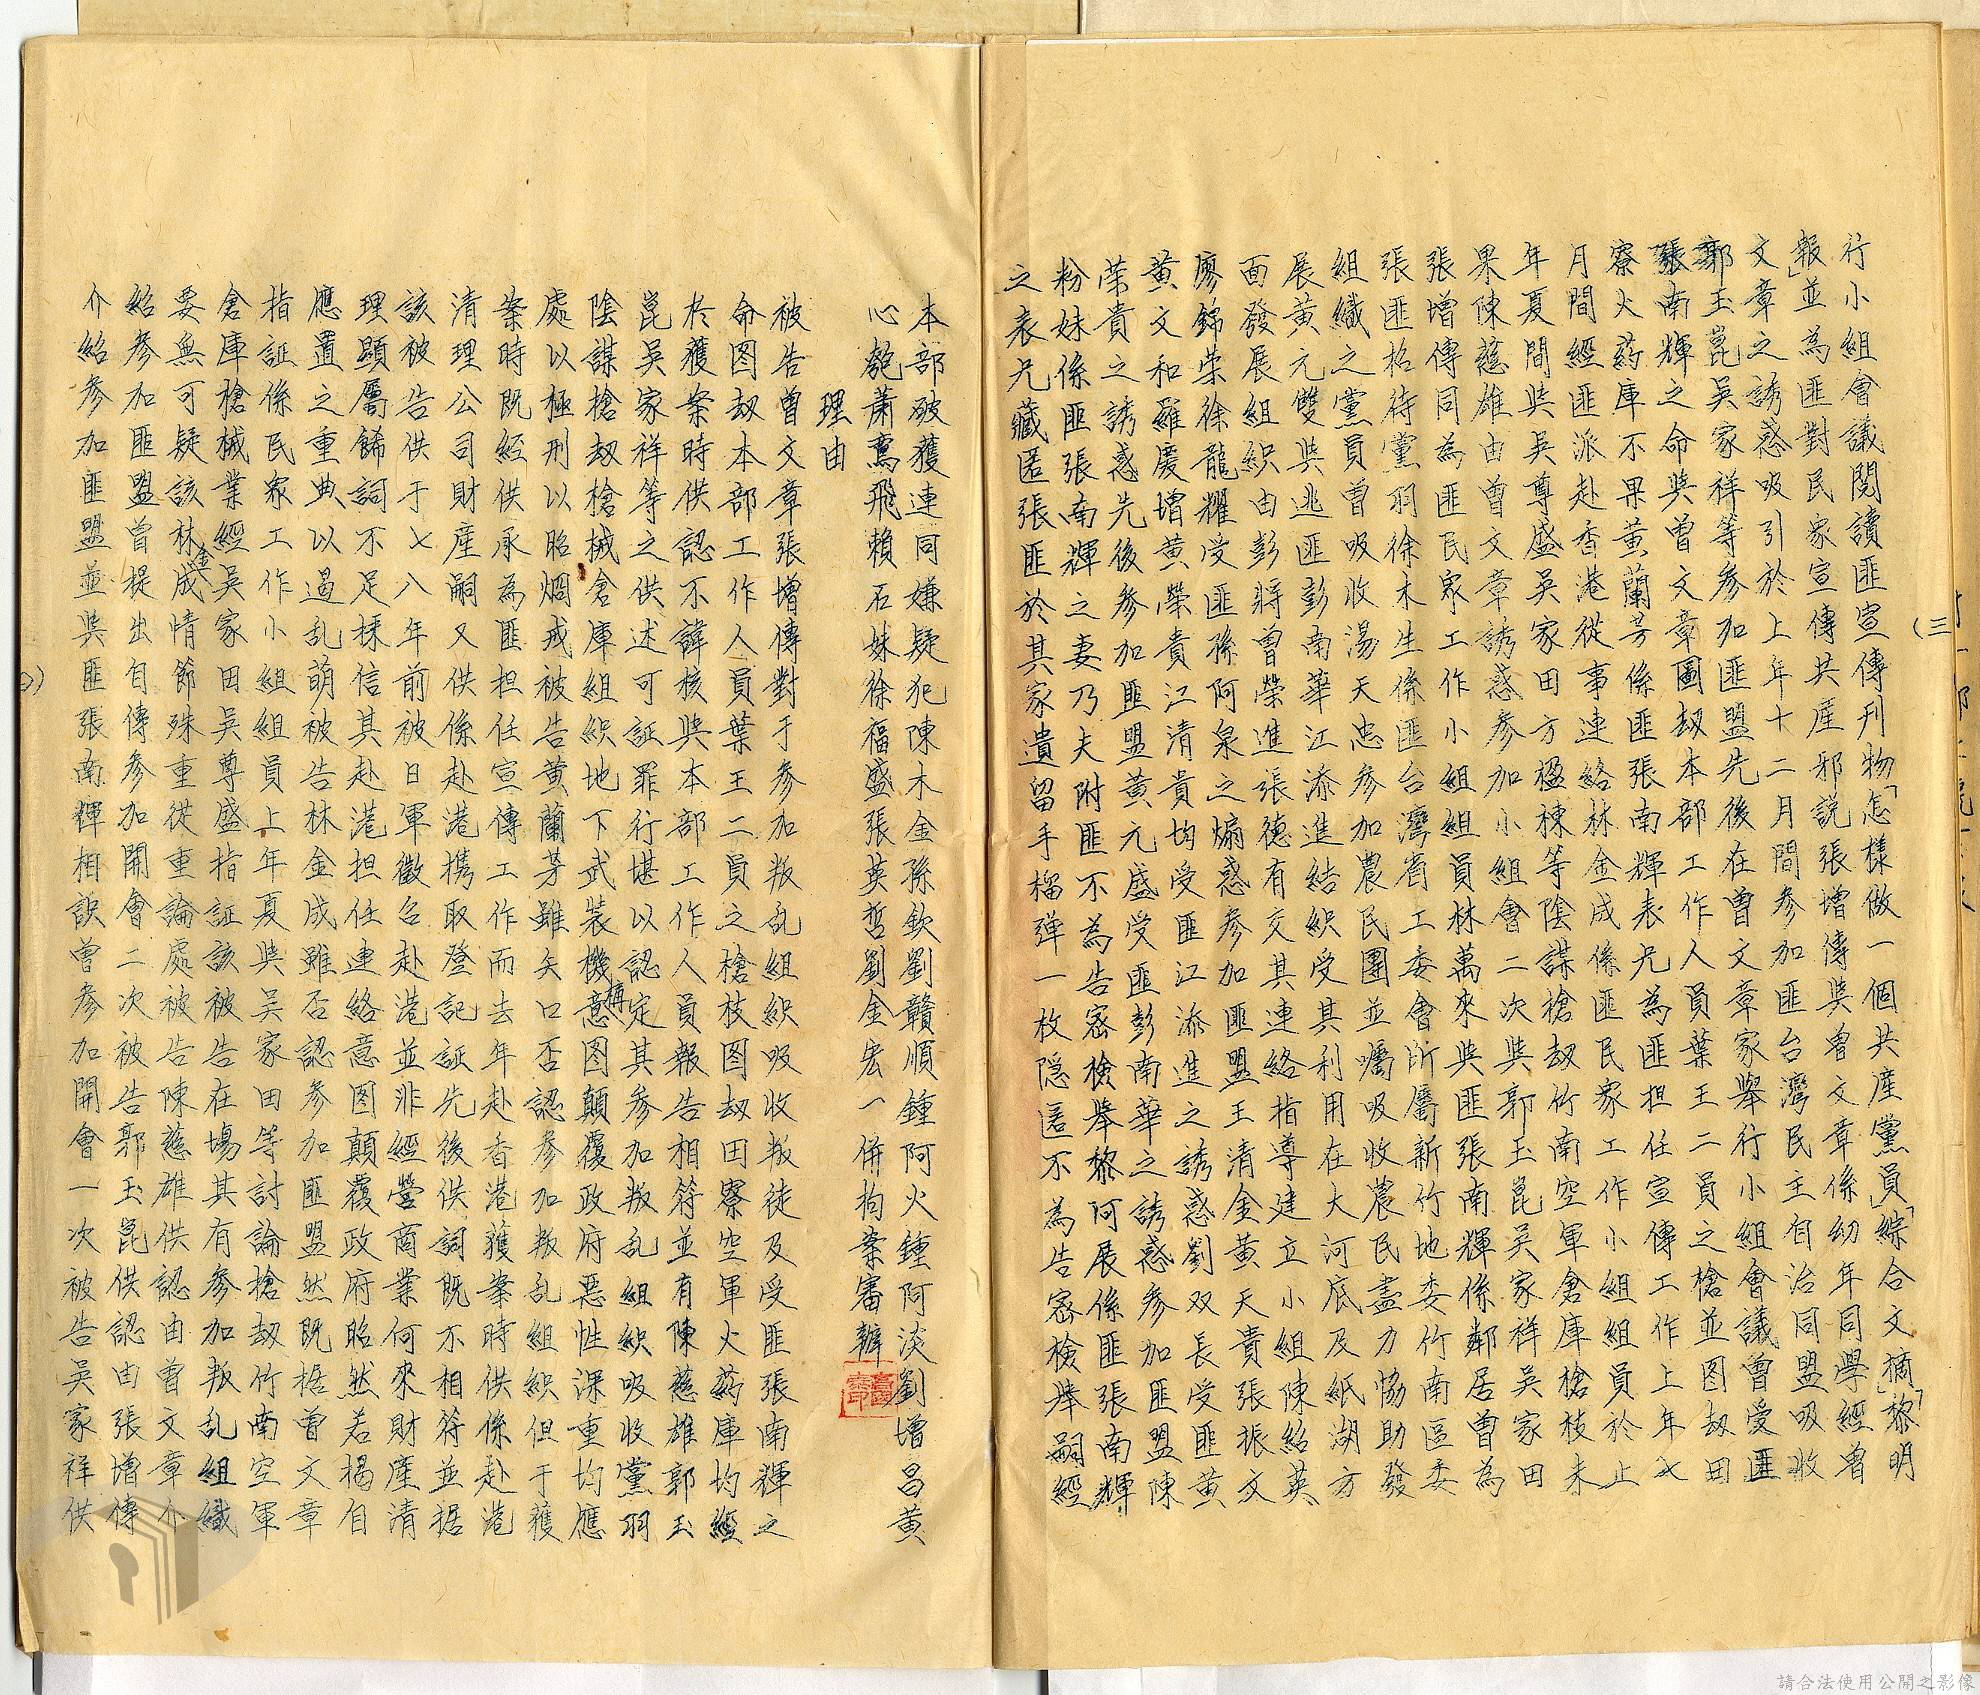 （三
行小組會議閱讀匪宣傳刊物「怎樣做一個共產黨員」「綜合文摘」「黎明
報」並為匪對民家宣傳共產邪說張增傳與曾文章係幼年同學經曾
文章之誘惑吸引於上年十二月間參加匪台灣民主自治同盟吸收
郭玉崑吳家祥等參加匪盟先後在曾文章家舉行小組會議曾受匪
張南輝之命與曾文章圖劫本部工作人員葉王二員之槍並图劫田
寮火葯庫不果黃蘭芳係匪張南輝表兄為匪担任宣傳工作上年七
月間經匪派赴香港從事連絡林金成係匪民家工作小組組員於上
年夏間與吳尊盛吳家田方楹棟等陰謀槍劫竹南空軍倉庫槍枝未
果陳慈雄由曾文章誘惑參加小組會二次與郭玉崑吳家祥吳家田
張增傳同為匪民眾工作小組組員林萬來與匪張南輝係鄰居曾為
張匪招待黨羽徐木生係匪台灣省工委會所屬新竹地委竹南區委
組織之黨員曾吸收湯天忠參加農民團並囑吸收農民盡力協助發
展黃元雙與逃匪彭南華江添進結織受其利用在大河底及紙湖方
面發展組織由彭將曾榮進張德有交其連絡指導建立小組陳紹英
廖錦榮徐龍耀受匪孫阿泉之煽惑參加匪盟王清金黃天貴張振文
黃文和羅慶增黃榮貴江清貴均受匪江添進之誘惑劉双長受匪黃
荣貴之誘惑先後參加匪盟黃元盛受匪彭南華之誘惑參加匪盟陳
粉妹係匪張南輝之妻乃夫附匪不為告密檢舉黎阿展係匪張南輝
之表兄藏匿張匪於其家遺留手榴弹一枚隐匿不為告密檢舉嗣經
本部破獲連同嫌疑犯陳木金孫欽劉贛順鍾阿火鍾阿淡劉增昌黃
心匏蕭鳶飛賴石妹徐福盛張英哲劉金宏一併拘案審辦
理由
被告曾文章張增傳對于參加叛乱組織吸收叛徒及受匪張南輝之
命图劫本部工作人員葉王二員之槍枝图劫田寮空軍火葯庫均經
於獲案時供認不諱核與本部工作人員報告相符並有陳慈雄郭玉
崑吳家祥等之供述可証罪行堪以認定其參加叛乱組織吸收黨羽
陰謀槍劫槍械倉庫組織地下武裝機構意图顛覆政府惡性深重均應
處以極刑以昭烱戒被告黃蘭芳雖矢口否認參加叛乱組織但于獲
案時既經供承為匪担任宣傳工作而去年赴香港獲案時供係赴港
清理公司財產嗣又供係赴港携取登記証先後供詞既不相符並据
該被告供于七八年前被日軍徵召赴港並非經營商業何來財產清
理顯屬餙詞不足採信其赴港担任連絡意图顛覆政府昭然若揭自
應置之重典以遏乱萌被告林金成雖否認參加匪盟然既据曾文章
指証係民家工作小組組員上年夏與吳家田等討論槍劫竹南空軍
倉庫槍械業經吳家田吳尊盛指証該被告在場其有參加叛乱組織
要無可疑該林金成情節殊重從重論處被告陳慈雄供認由曾文章介
紹參加匪盟曾提出自傳參加開會二次被告郭玉崑供認由張增傳
介紹參加匪盟並與匪張南輝相識曾參加開會一次被告吳家祥供
請合法使用公開之影像